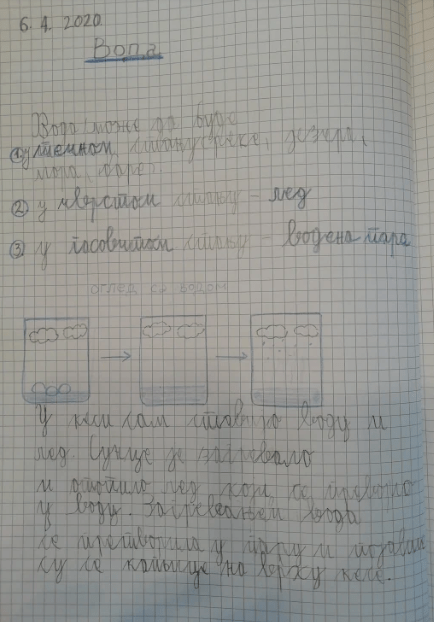 6. 4. 2020.
Вода
Вода може да буде
① у течном стању - реке, језера,
мора, баре
② у чврстом стању - лед
③ у гасовитом стању - водена пара
оглед са водом
У кеси сам ставио воду и
лед. Сунце је загревало
и отопило лед који се претворио
у воду. Загревањем вода
се претворила у пару и
су се капљице на врху кесе.